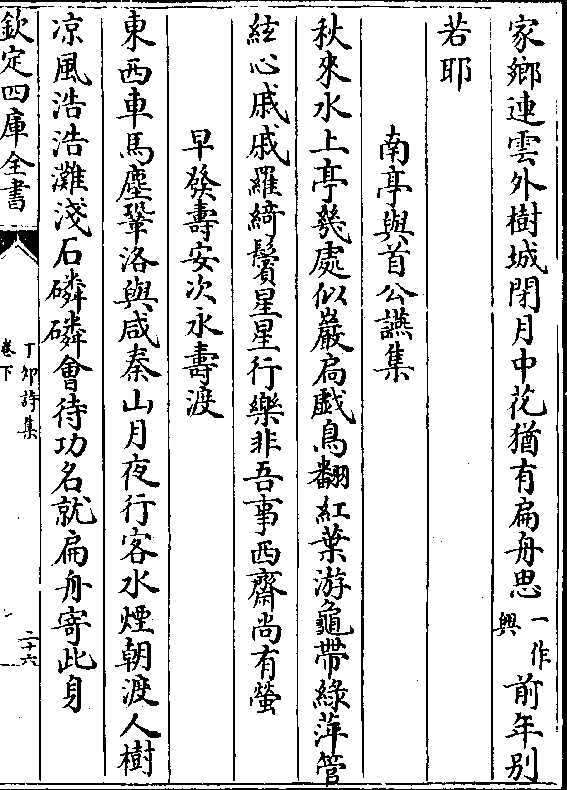 家鄉連雲外樹城閉月中花猶有扁舟思一作興前年别
若耶
南亭與首公讌集
秋來水上亭幾處似巖扃戲鳥翻紅葉游龜帶綠萍管
絃心戚戚羅綺鬢星星行樂非吾事西齋尚有螢
早發壽安次永壽渡
東西車馬塵鞏洛與咸秦山月夜行客水煙朝渡人樹
凉風浩浩灘淺石磷磷會待功名就扁舟寄此身
欽定四庫全書
丁卯詩集
卷下
二十六